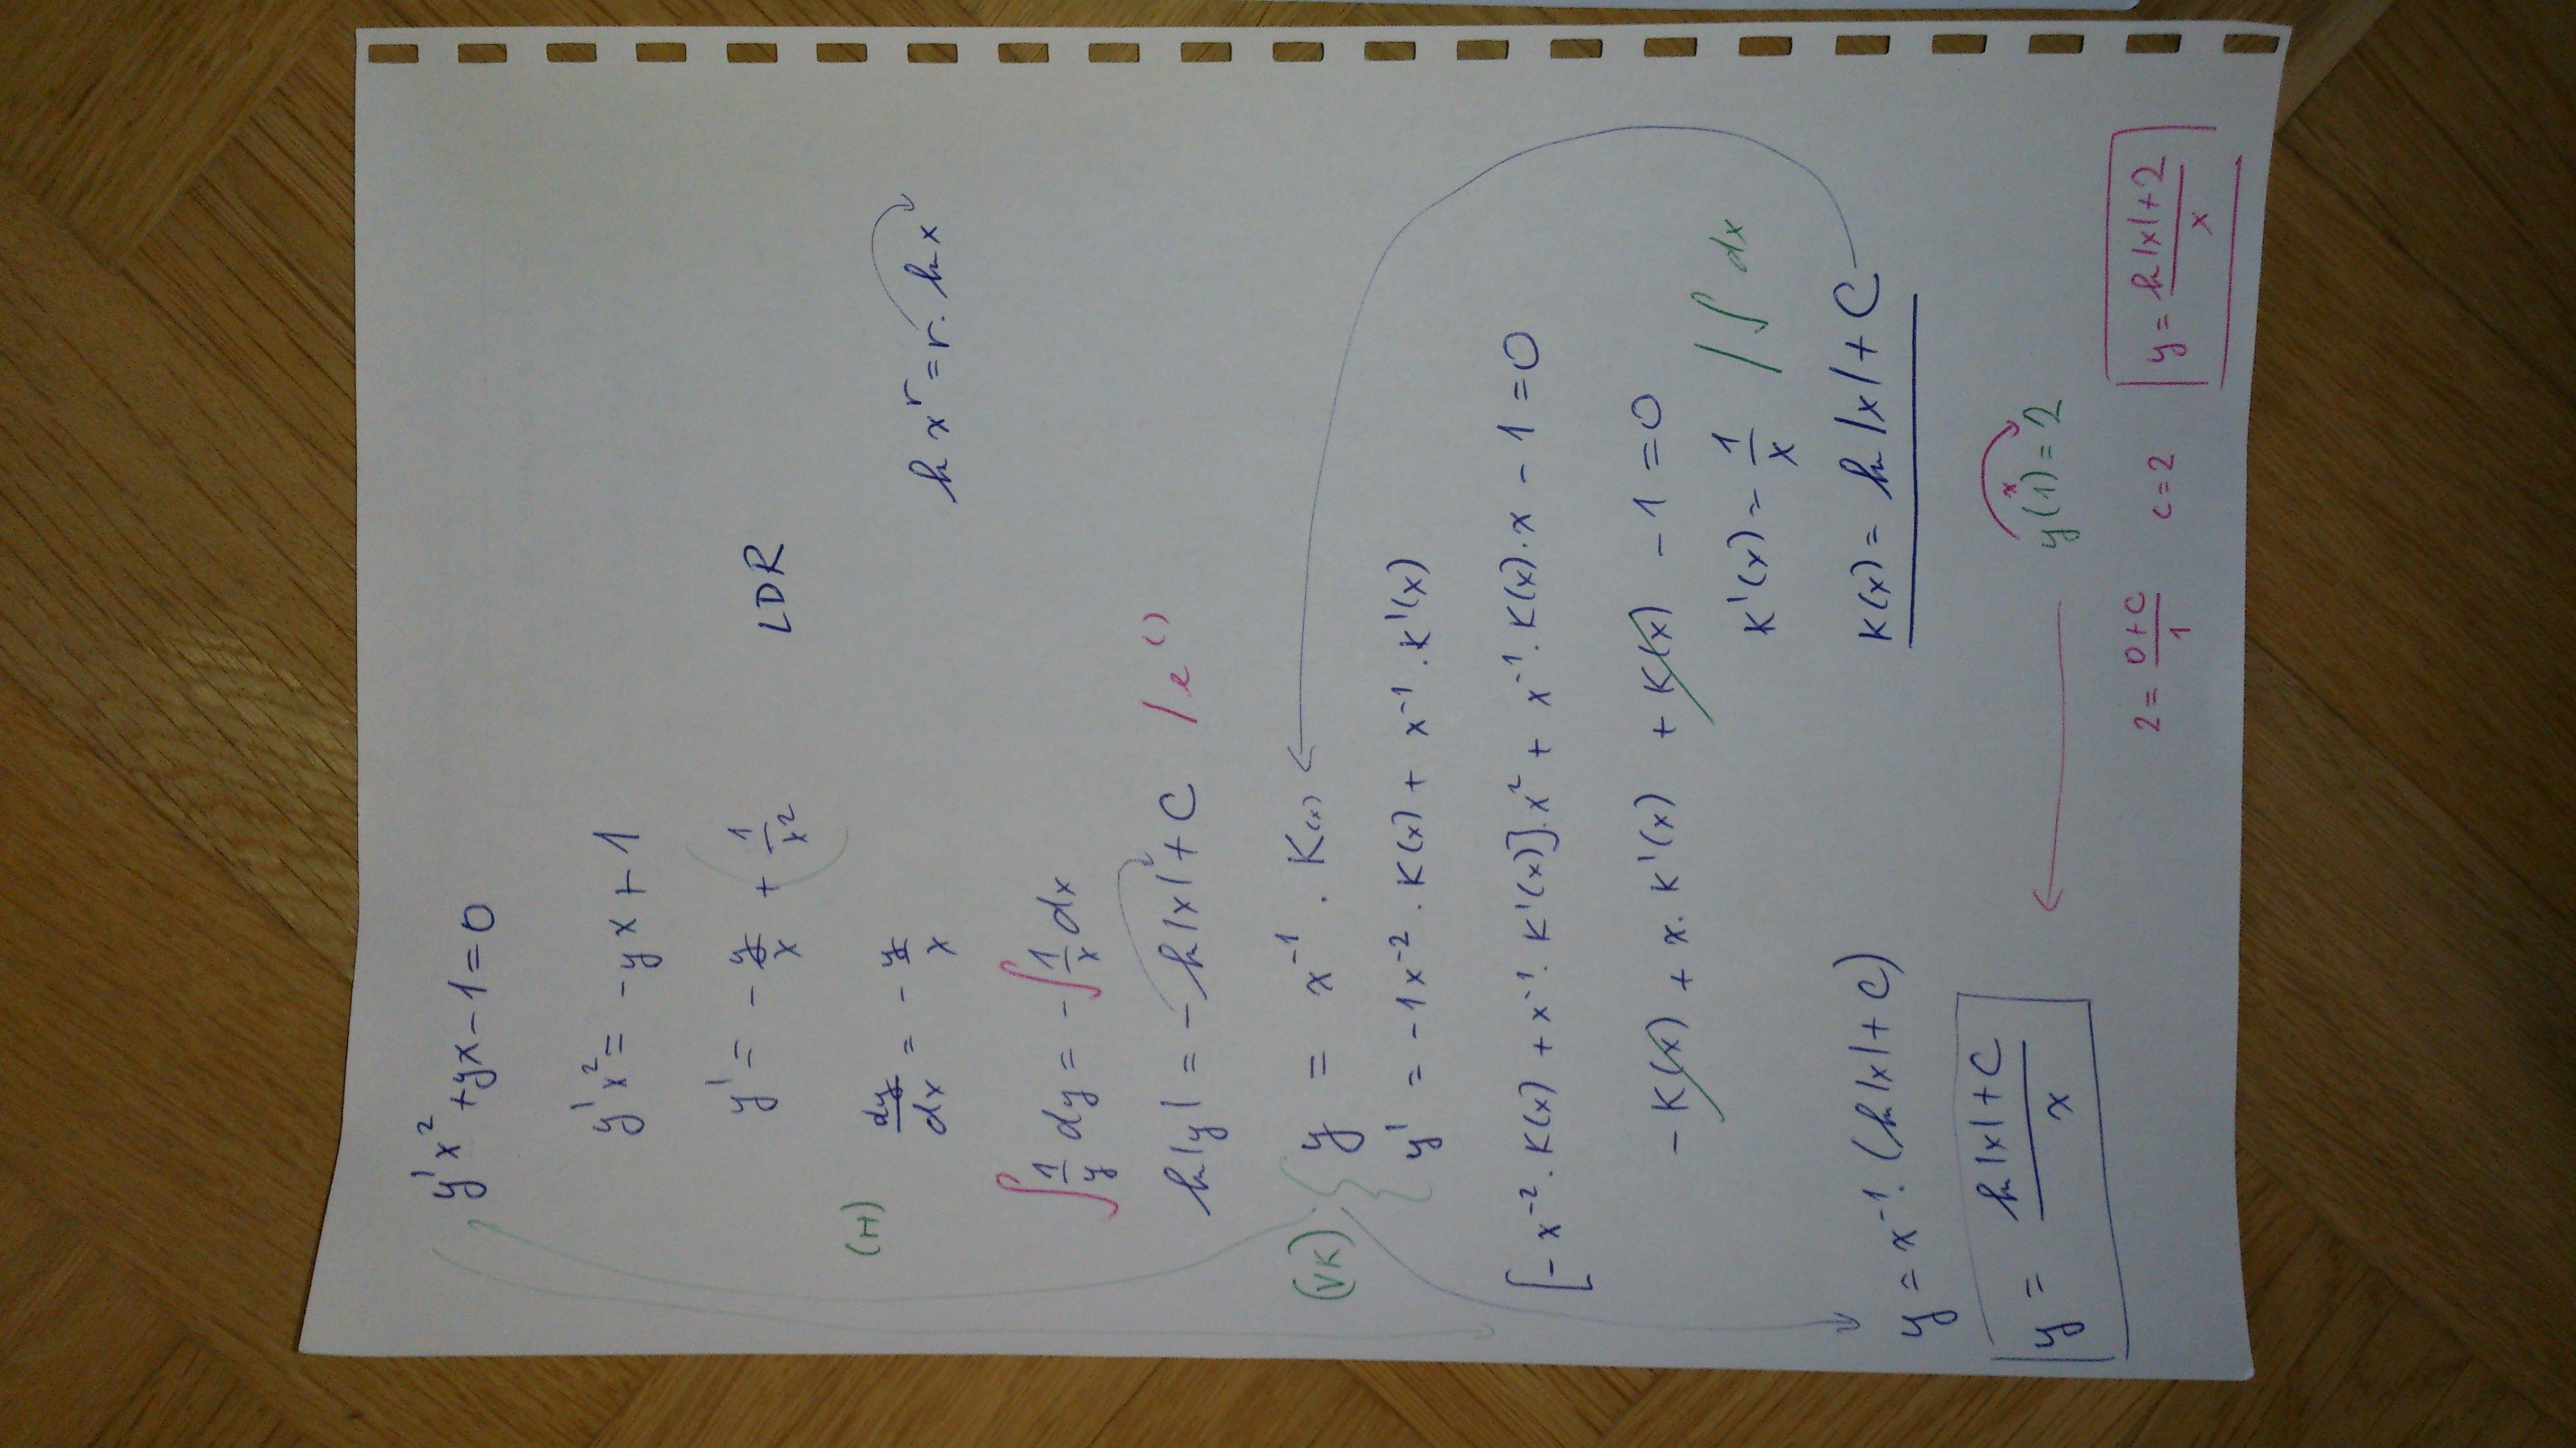 y'x² + yx - 1 = 0
y'x² = -yx + 1
y' = - y/x + 1/x² LDR
(H) dy/dx = - y/x
ln x^r = r · ln x
∫ 1/y dy = - ∫ 1/x dx
ln|y| = - ln|x| + C / e^()
(VK) y = x⁻¹ · K(x)
y' = -1x⁻² · K(x) + x⁻¹ · K'(x)
[- x⁻² · K(x) + x⁻¹ · K'(x)] · x² + x⁻¹ · K(x) · x - 1 = 0
- K(x) + x · K'(x) + K(x) - 1 = 0
K'(x) = 1/x / ∫ dx
K(x) = ln|x| + C
y = x⁻¹ · (ln|x| + C)
y = (ln|x| + C)/x
x
y(1) = 2
2 = (0+C)/1 C = 2 y = (ln|x| + 2)/x